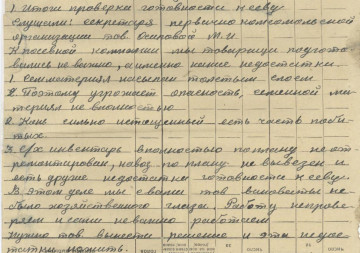 1) Итоги проверки готовности к севу
Слушали: секретаря первично комсомольской
организации тов. Осиповой М.И.
К посевной компании мы товарищи подгото
вились не важно, а именно наши недостатки.
1. семматериял насыпан толстым слоем
Поэтому угрожает опасность, семенной ма-
териял не вполностью
2. Конь сильно истощенный есть часть поби-
тых.
3. с/х инвентарь вполностью по плану не от-
ремонтирован, навоз по плану не вывезен и
есть другие недостатки готовности к севу.
В этом деле мы с вами тов. виноваты не
было хозяйственного глаза. Работу не прове-
ряем и сами не важно работаем
Нужно тов. вынести решение и эти недос-
татки изжить.